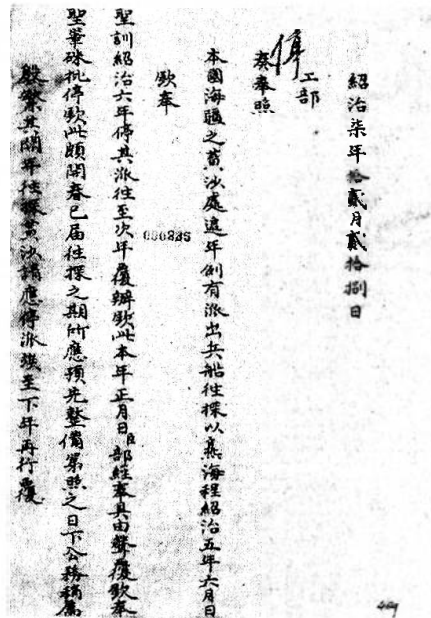 紹治柒年拾貳月貳拾捌日
工部
奏奉照
本國海疆之黃沙處遞年例有派出兵船往探以熟海程紹治五年六月日
欽奉
聖訓紹治六年停其派往至次年覆辦欽此本年正月日臣部經奉具由聲覆欽奉
聖筆硃批停欽此頗開春已届往探之期所應預先整備第照之日下公務稍屬
殷繁其開年往探黃沙請應停派竢至下年再行覆
000335
469